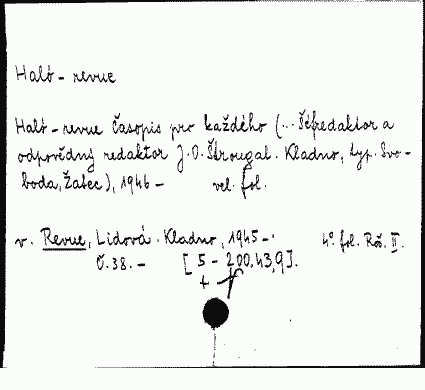 Haló - revue
Haló - revue Časopis pro každého (... Šéfredaktor a
odpovědný redaktor J. O. Štrougal. Kladno, typ. Svo-
boda, Žatec), 1946 - vel. fol.
v. Revue, Lidová. Kladno, 1945 -. 4°. fol. Roč. II.
Č. 38. - [5 - 200,43,9].
+